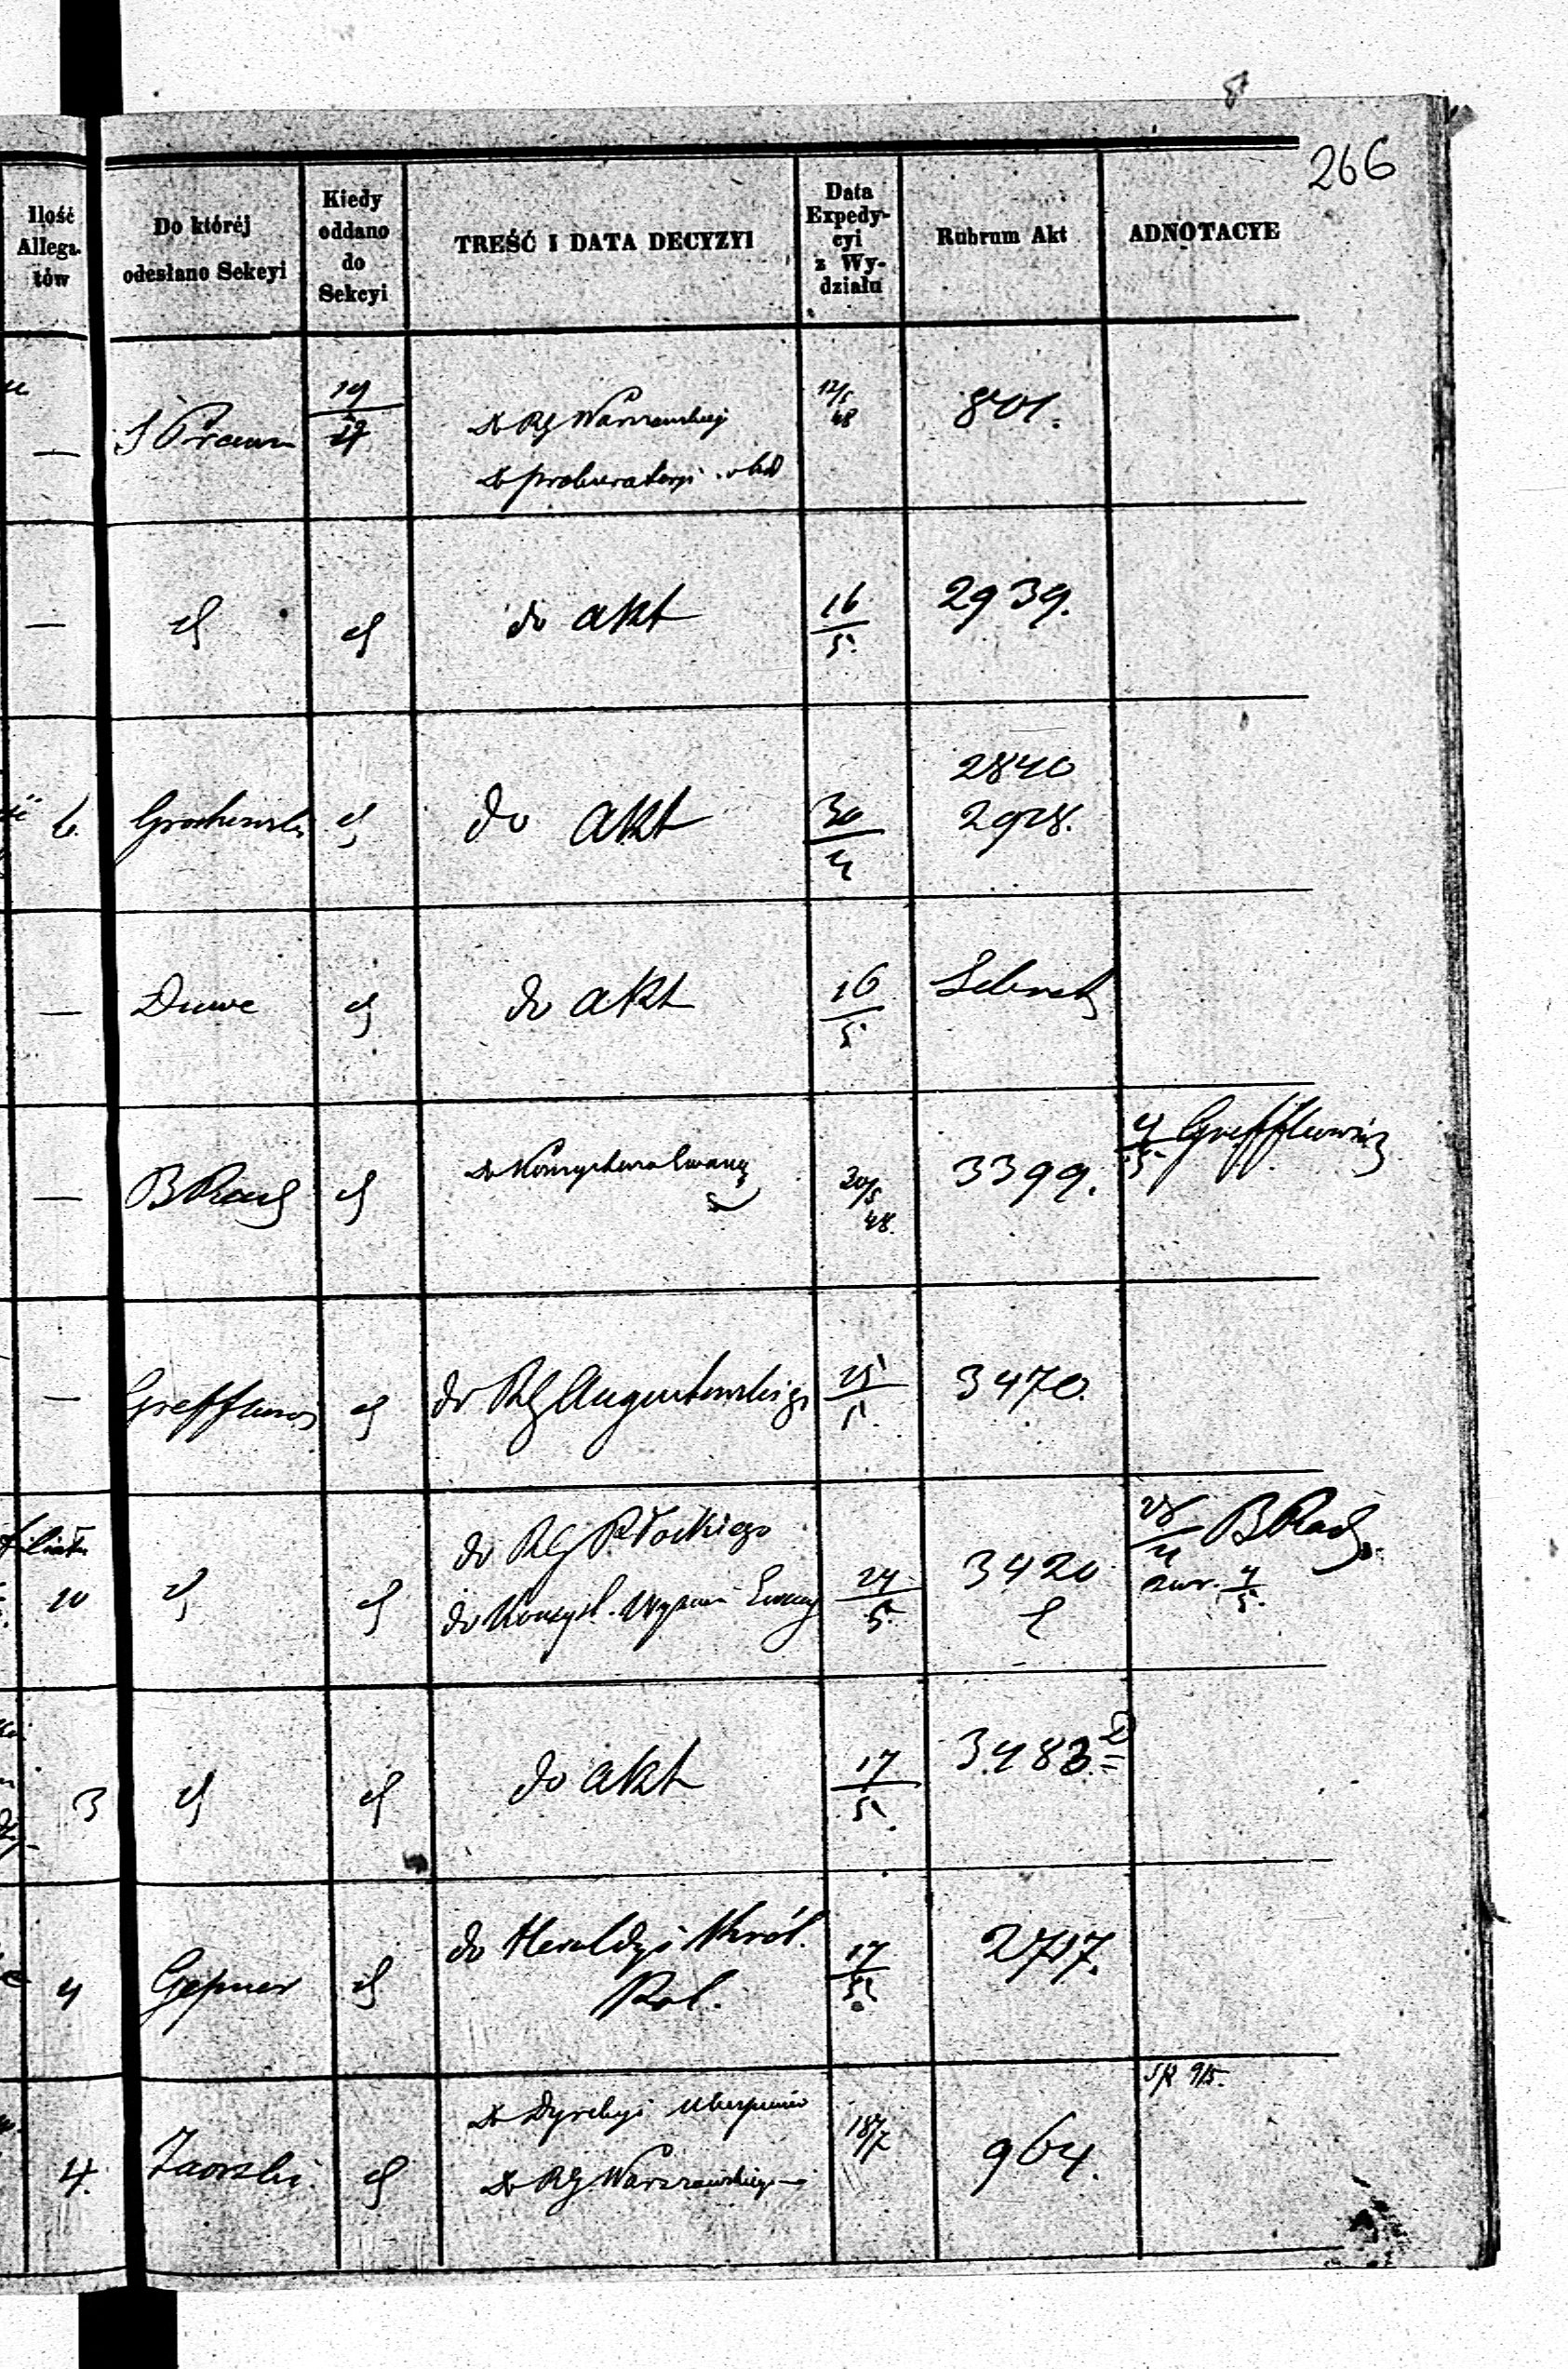 266
Ilość
Allega-
tów
Do któréj
odesłano Sekcyi
Kiedy
oddano
do
Sekcyi
TREŚĆ I DATA DECYZYI
Data
Expedy-
cyi
z Wy-
działu
Rubrum Akt
ADNOTACYE
—
19
do RG Warszawskiej
do prokuratoryi
12/5
48
801.
—
do akt
16/5.
2939.
6.
Grochowski
do akt
30/4
2840
2928.
—
Duwe
do akt
16/5
—
B Rach
do Konsystorza Ewang
20/5
48.
3399.
4/5. Greffkowicz
—
do RG Augustowskiego
25/5.
3470.
10
do RG Płockiego
do Konsyst. Wyznań Ewang
24/5.
3420
28/4 B Rach.
zwr. 4/5.
3
do akt
17/5.
3483.
4
Gepner
do Heroldyi Król.
Pol.
17/5.
2717.
4.
Zaorski.
do Dyrekcyi Ubezpieczeń
do RG Warszawskiego
18/7
964.
SR 9/5.